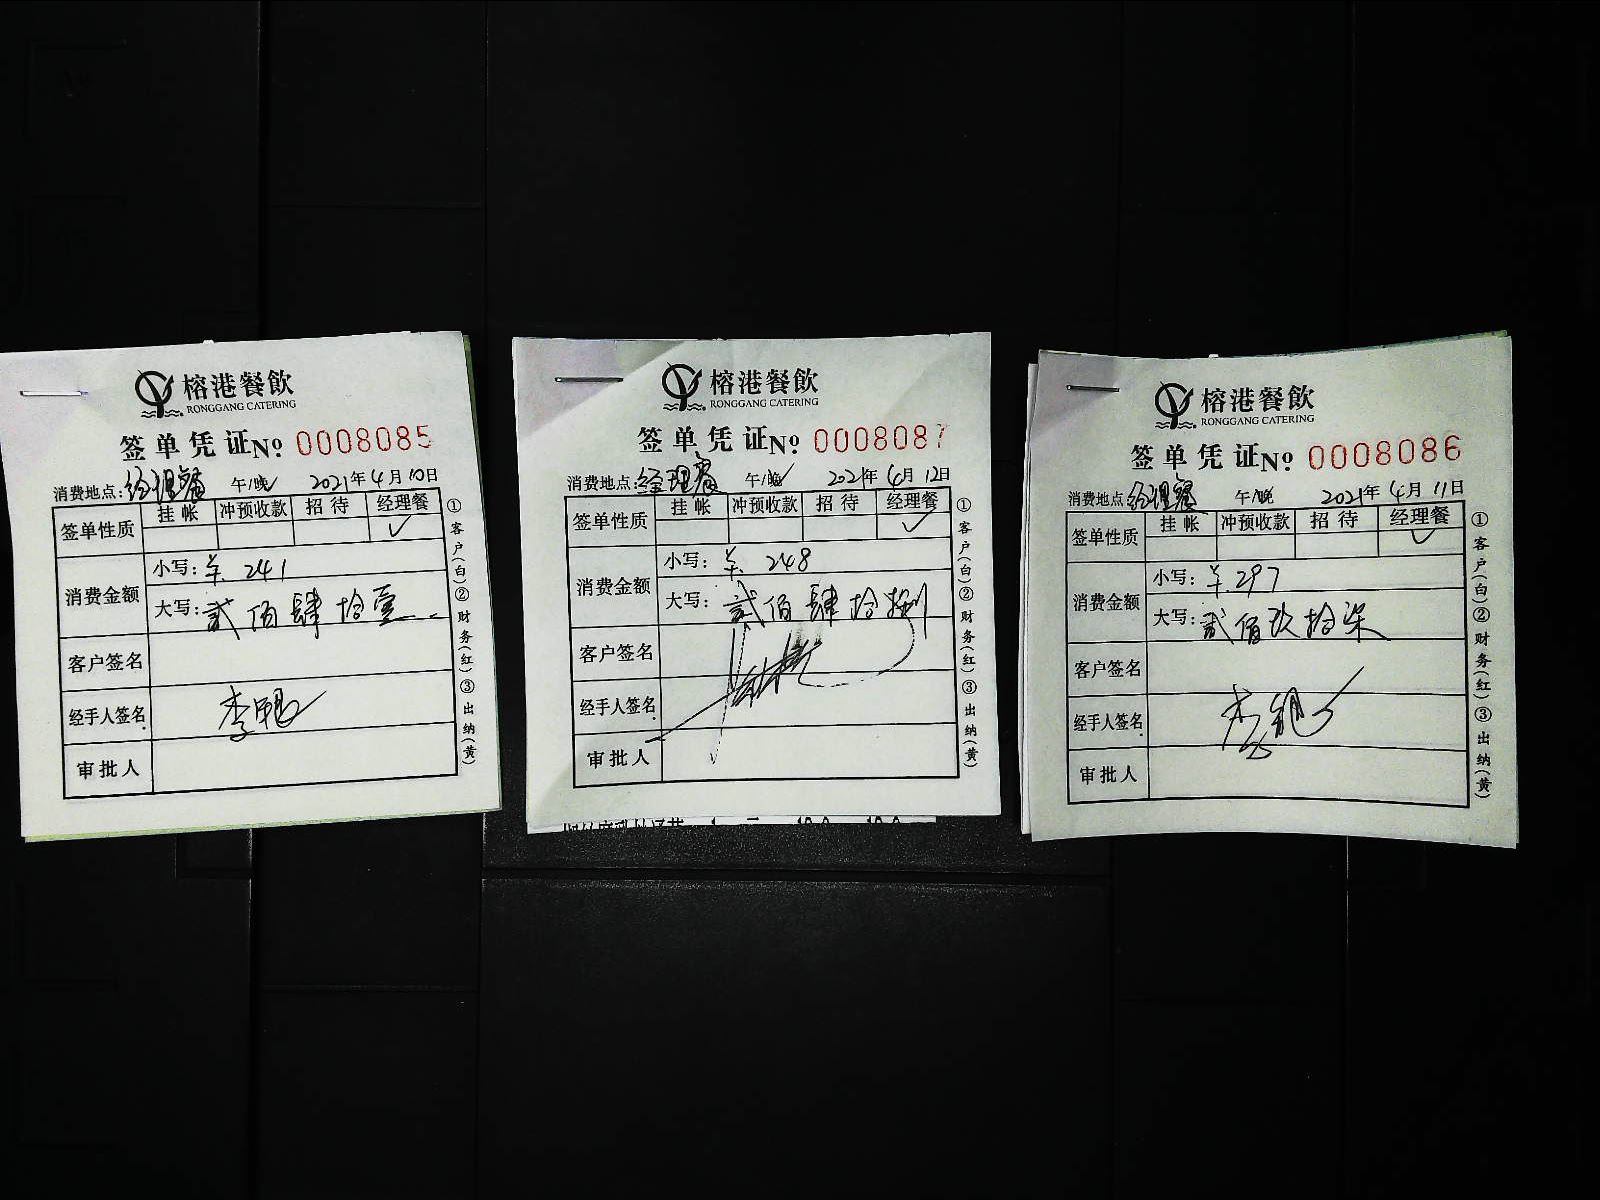 榕港餐飲
RONGGANG CATERING
签单凭证No. 0008085
消费地点:经理餐 午/晚 2021年4月10日
签单性质 挂帐 冲预收款 招待 经理餐
✓
消费金额
小写:¥. 241
大写:贰佰肆拾壹
客户签名
经手人签名.
审批人
①客户(白)②财务(红)③出纳(黄)
榕港餐飲
RONGGANG CATERING
签单凭证No. 0008087
消费地点:经理餐 午/晚 2021年4月12日
签单性质 挂帐 冲预收款 招待 经理餐
✓
消费金额
小写:¥. 248
大写:贰佰肆拾捌
客户签名
经手人签名.
审批人
①客户(白)②财务(红)③出纳(黄)
榕港餐飲
RONGGANG CATERING
签单凭证No. 0008086
消费地点:经理餐 午/晚 2021年4月11日
签单性质 挂帐 冲预收款 招待 经理餐
✓
消费金额
小写:¥. 297
大写:贰佰玖拾柒
客户签名
经手人签名.
审批人
①客户(白)②财务(红)③出纳(黄)